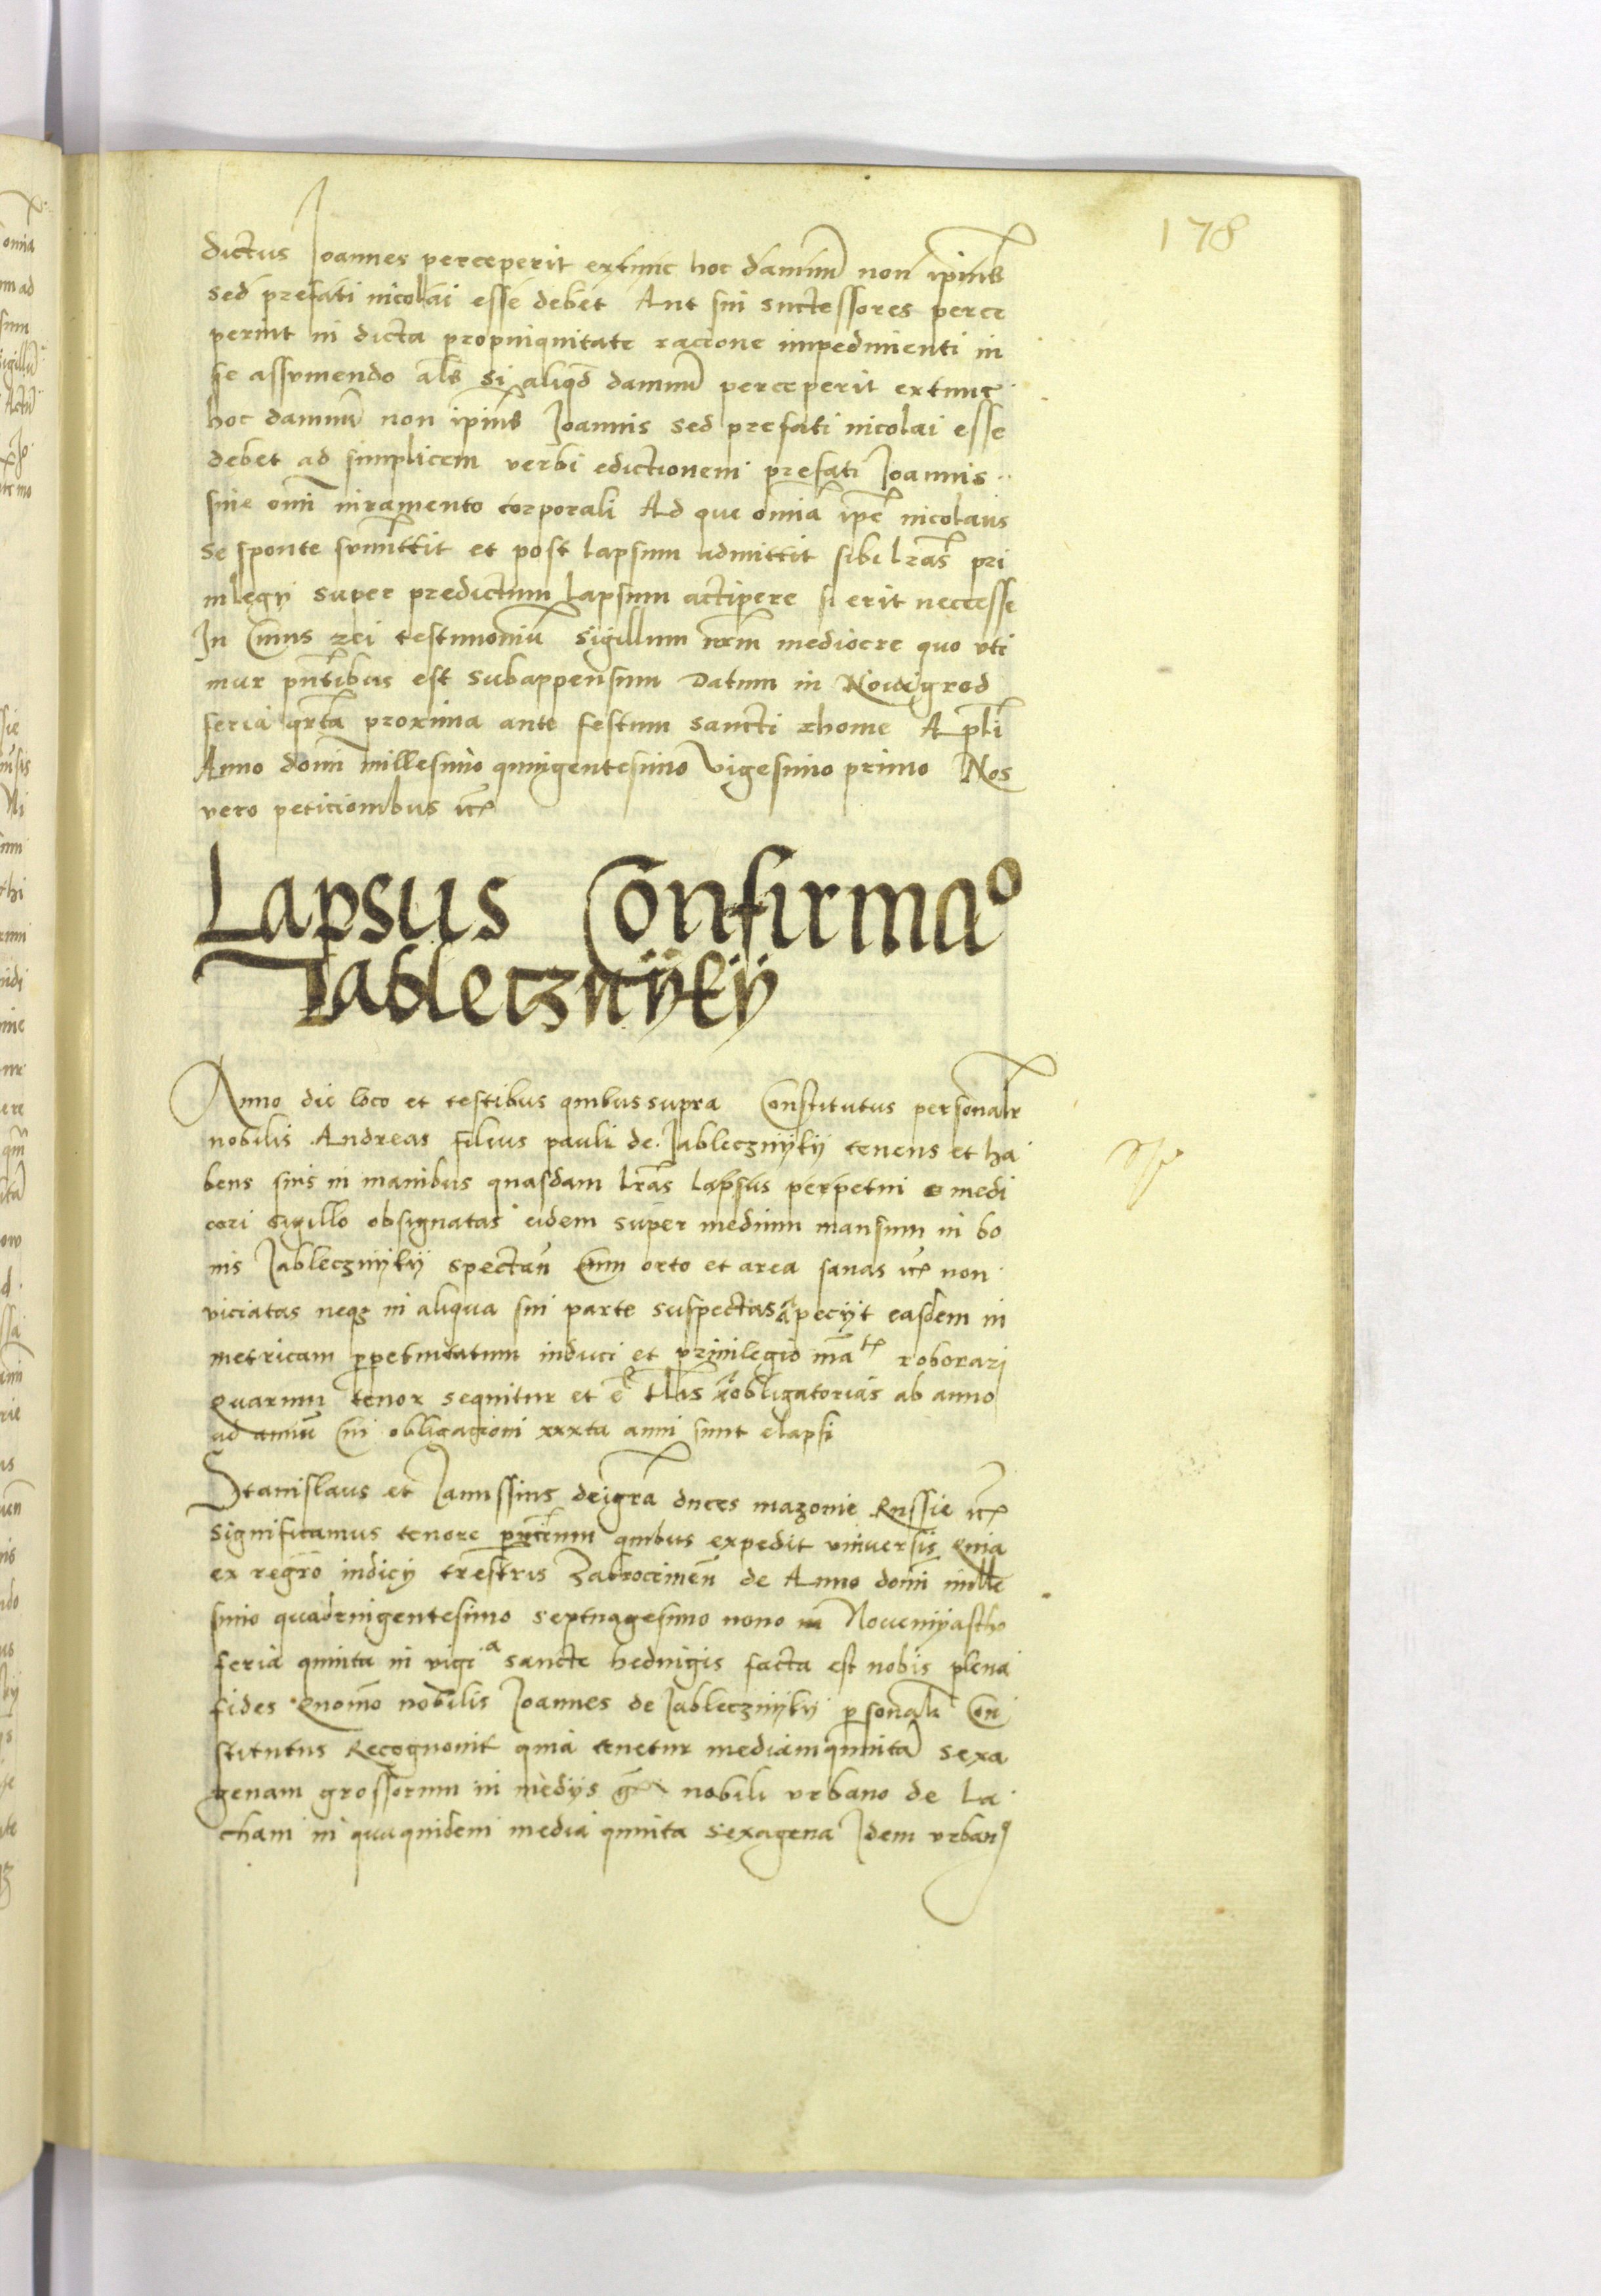 178
dictus Joannes perceperit extunc hoc damnũ non ipius
sed prefati nicolai esse debet Aut sui successores perce
perint in dicta propinquitate racione impedimenti in
se assumendo als si aliqd damnũ perceperit extunc
hoc damnũ non ipius Joannis sed prefati nicolai esse
debet ad simplicem verbi edictionem prefati Joannis
sine omi iuramento corporali Ad que omnia ipe nicolaus
se sponte summittit et post lapsum admittit sibi lras pri
uilegy super predictum lapsum accipere si erit neccesse
In Cuius rei testimoniũ sigillum nrm mediocre quo vti
mur pntibus est subappensum Datum in Nowigrod
feria qrta proxima ante festum sancti thome Apli
Anno domi millesimo quingentesimo vigesimo primo Nos
vero peticionibus etc
Lapsus Confirmao
Jablecznÿkÿ
Anno die loco et testibus quibus supra Constitutus personalr
nobilis Andreas filius pauli de Jableczniÿkÿ tenens et ha
bens suis in manibus quasdam lras lapsus perpetui medi
cori sigillo obsignatas eidem super medium mansum in bo
nis Jableczniÿkÿ spectañ Cum orto et area sanas etc non
viciatas neq in aliqua sui parte suspectas peciÿt easdem in
metricam ppetuitatum induci et priuilegio roborari
quarum tenor sequitur et obligatorias ab anno
ad annũ Cui obligacioni xxxta anni sunt elapsi
Stanislaus et Janussius dei gra duces mazouie Russie etc
significamus tenore pncium quibus expedit vniuersis Quia
ex regro iudicy trestris Zakrocimeñ de Anno domi mille
simo quadringentesimo septuagesimo nono in Noueniÿastho
feria quinta in vigia sancte hedwigis facta est nobis plena
fides Quomo nobilis Joannes de Jableczniÿkÿ psonalr Con
stitutus Recognouit quia tenetur mediam quintã sexa
genam grossorum in medÿs nobili vrbano de La
chani in quaquidem media quinta sexagena Idem vrban9